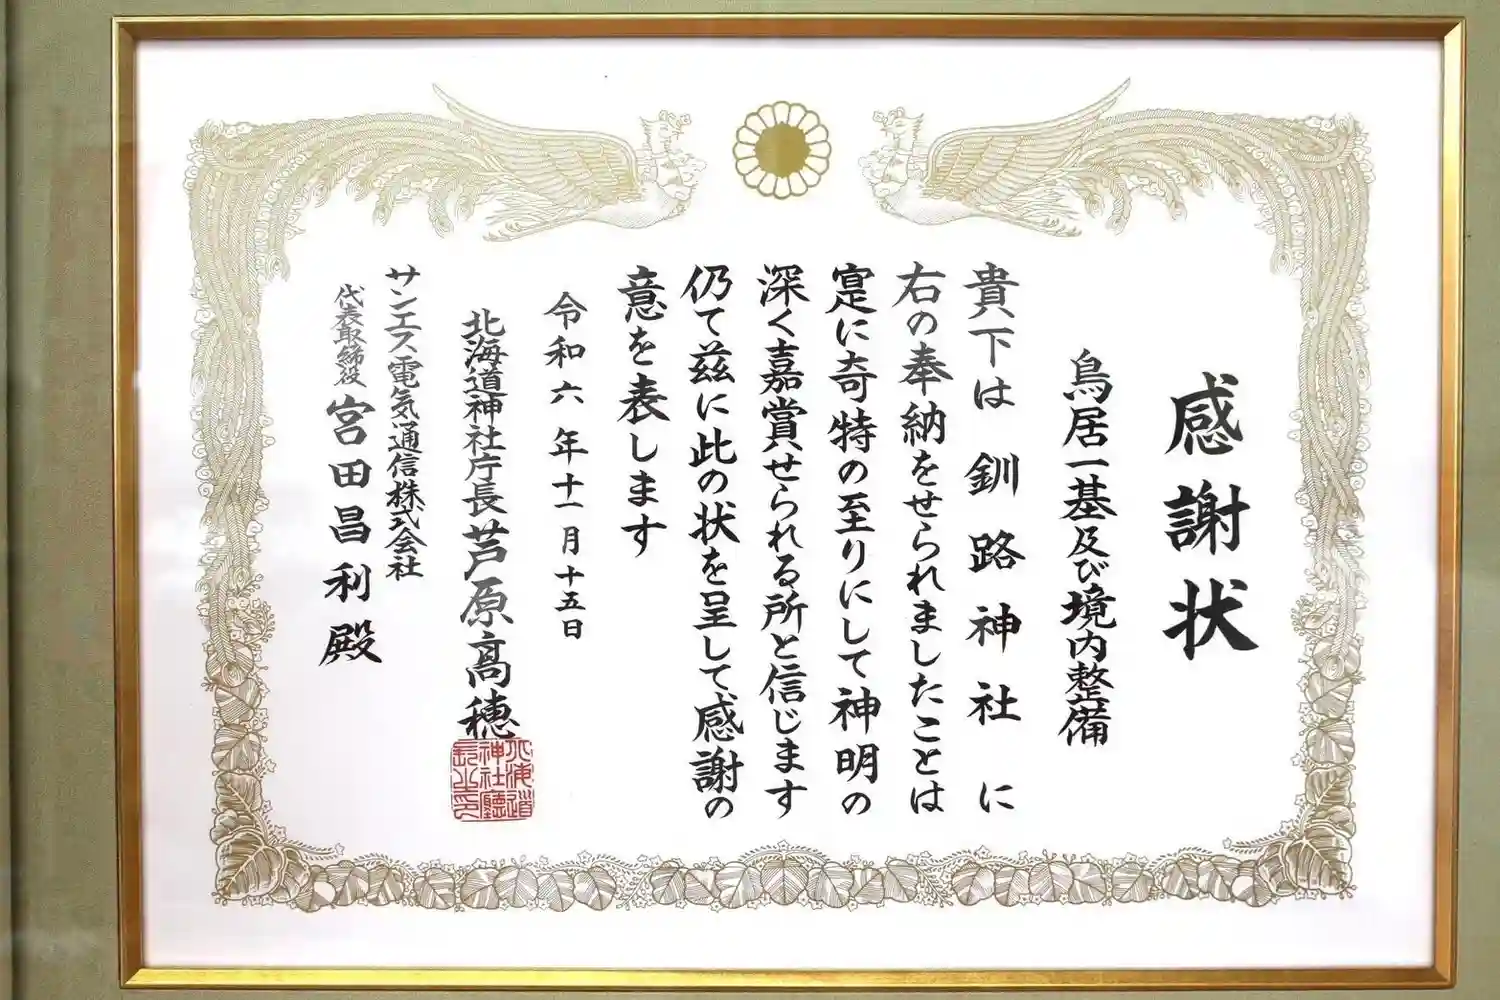 感謝状
鳥居一基及び境内整備
貴下は釧路神社に
右の奉納をせられましたことは
寔に奇特の至りにして神明の
深く嘉賞せられる所と信じます
仍て茲に此の状を呈して感謝の
意を表します
令和六年十一月十五日
北海道神社庁長芦原高穂
北海道
神社廳
長之印
サンエス電気通信株式会社
代表取締役 宮田昌利殿